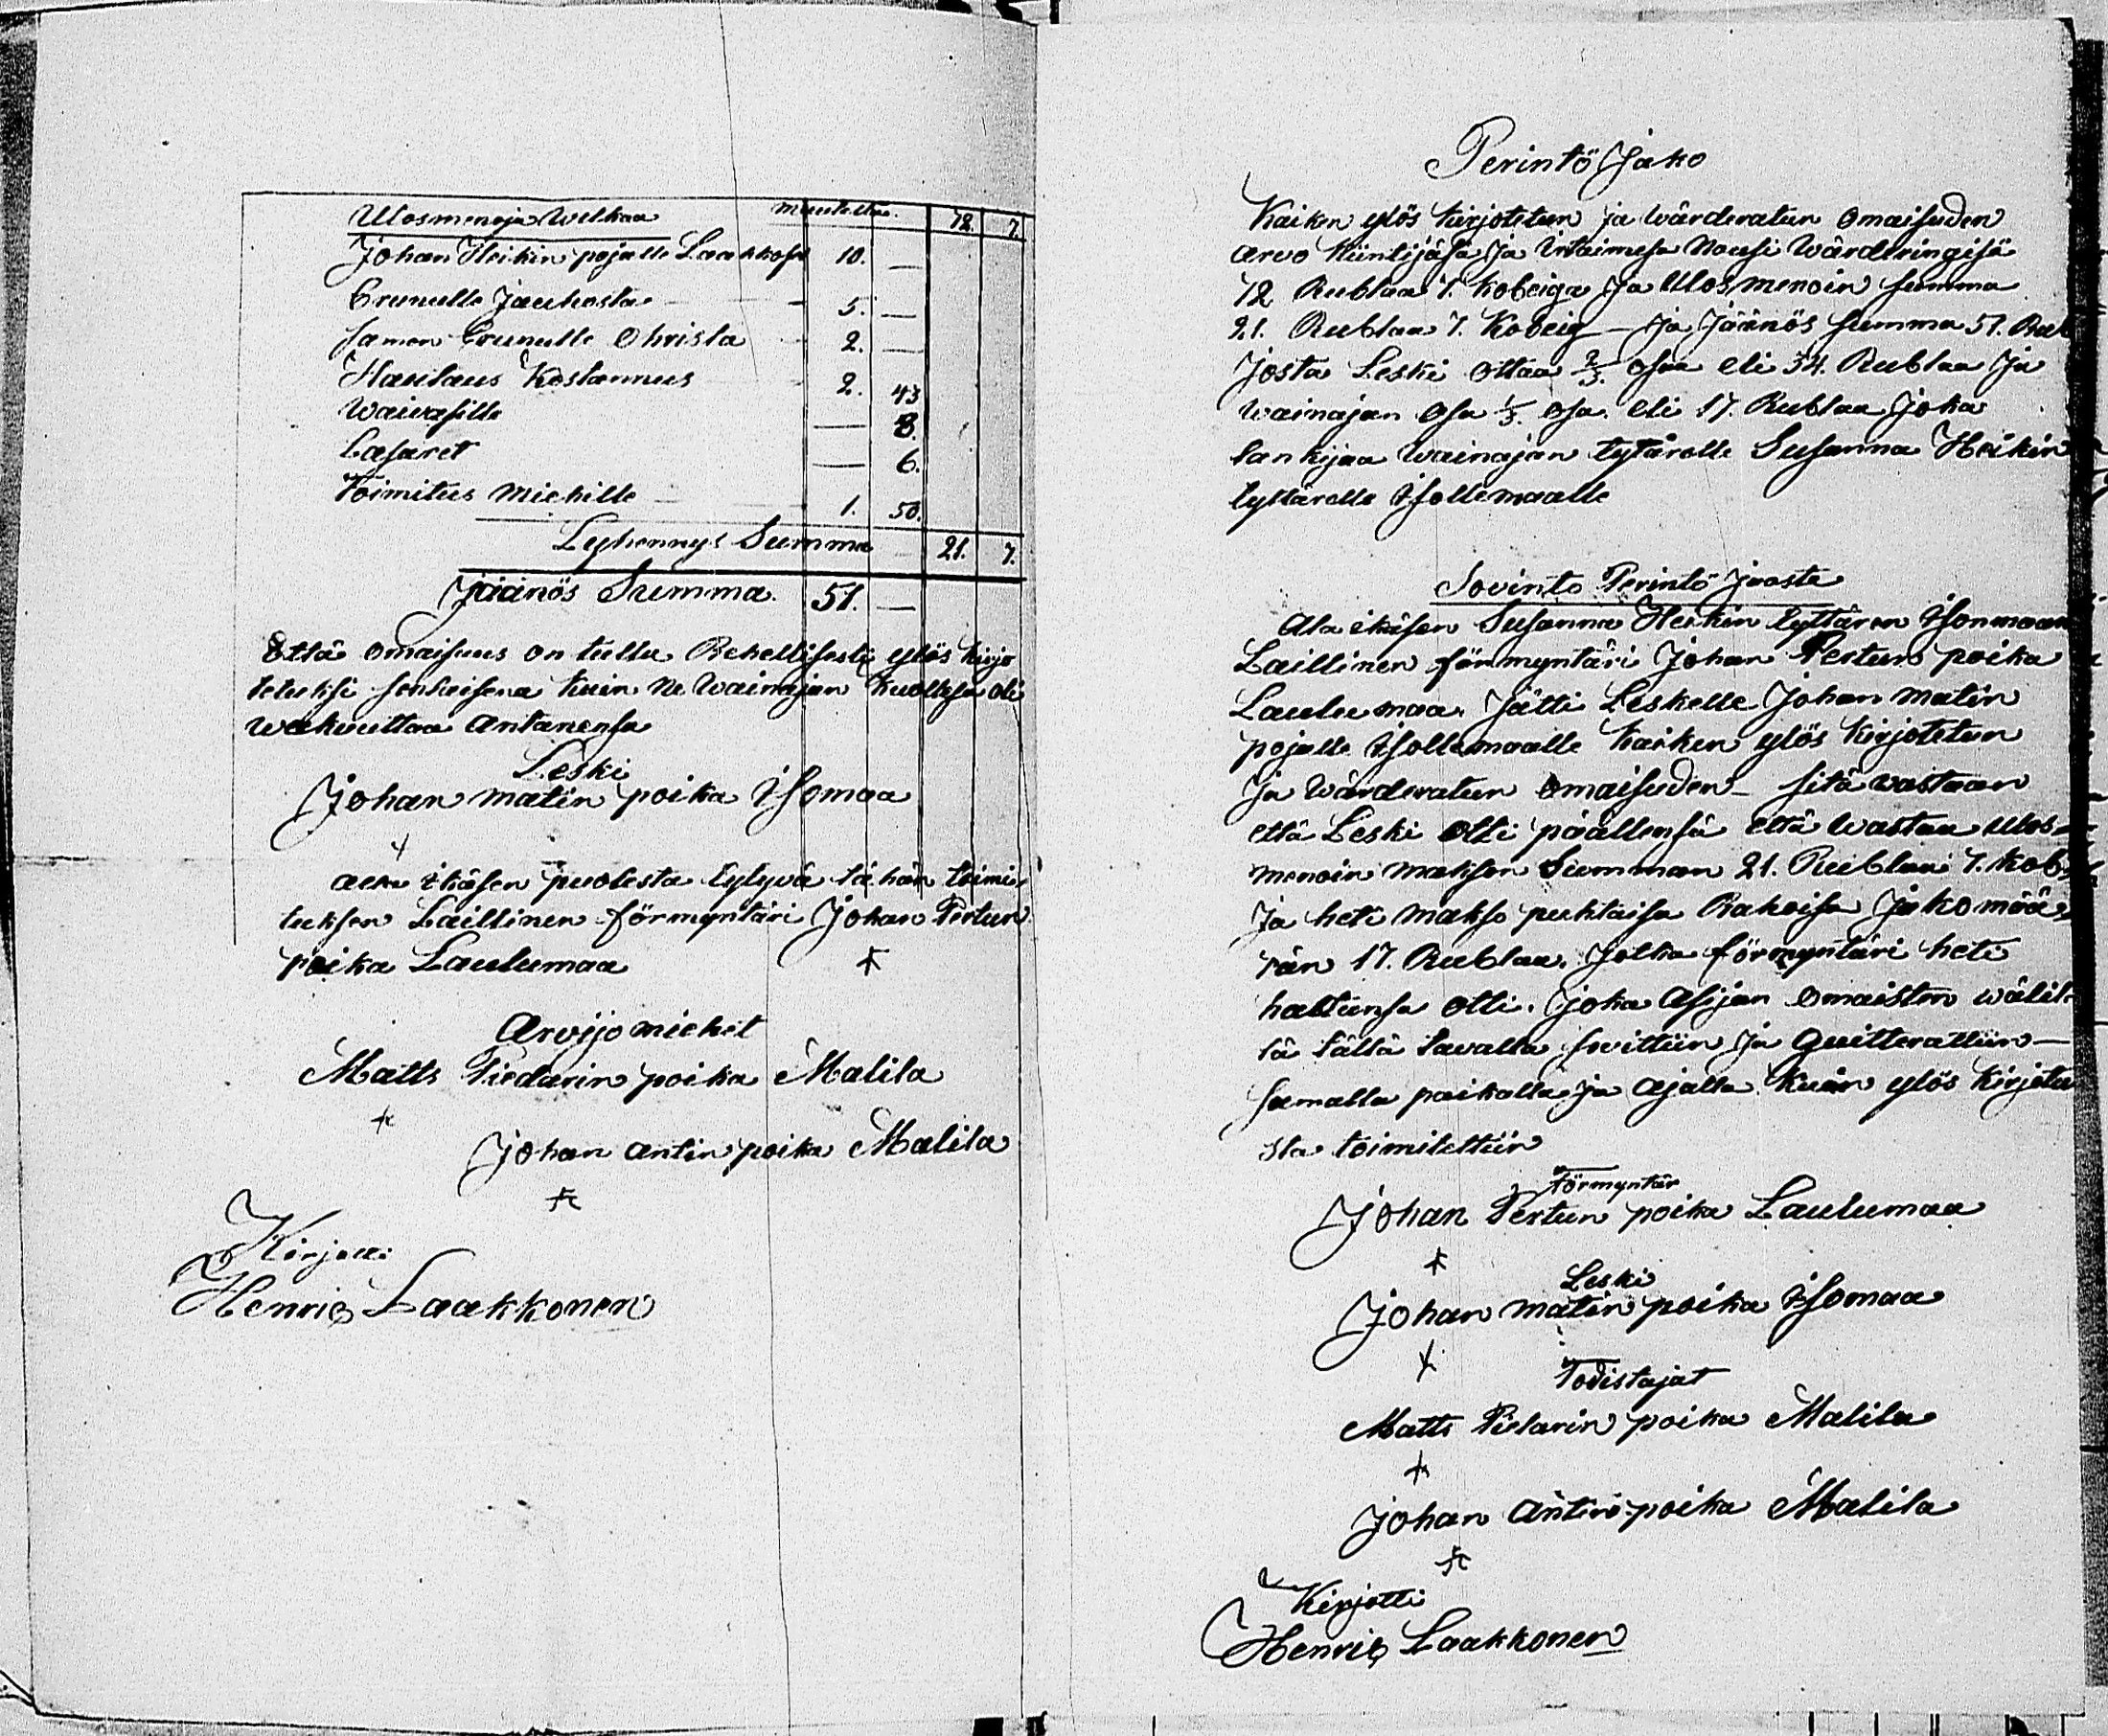 Ulosmenoja Welkaa muutettu. 72. 7.
Johan Heikin pojalle Laakkose 10. —
Crunulle Jauhosta 5. —
samon Crunulle Ohrista 2. —
Hautaus Kostannus 2. 43
Waivasille — 8.
Lasaret — 6.
Toimitus Miehille 1. 50.
Lyhennys Summa — 21. 7.
Jäänös Summa. 51. —
Että omaisuus on tullu Rehellisesti ylös kirjo
tetuksi senkaisena kuin ne Wainajan kuollesa oli
wakuuttaa antanensa
Leski
Johan matin poika Isomaa
ala ikäsen puolesta tytyvä tähän toimi
tuksen Laillinen förmyntäri Johan Pertun
poika Laulumaa
Arvijo miehet
Matts Piedarin poika Malila
Johan antin poika Malila
Kirjotti
Henric Laakkonen
Perintö Jako
Kaiken ylös kirjotetun ja wärderatun omaisuden
arvo kiintijäsä ja irtaimesa Nousi Wärderingisä
72 Rublaa 7. kobeiga ja Ulosmenoin summa
21. Rublaa 7. Kobeig — ja Jäänös summa 51. Rub
Josta Leski ottaa 2/3. osaa eli 34. Rublaa ja
wainajan osa 1/3. osa. eli 17. Rublaa joka
lankijaa wainajan tytärelle Susanna Heikin
tyttärelle Isollemaalle
Sovinto Perintö Jaosta
Ala ikäsen Susanna Heikin tyttären Isonmaan
Laillinen förmyntäri Johan Pertun poika
Laulumaa. Jätti Leskelle Johan matin
pojalle Isollemaalle kaiken ylös kirjotetun
Ja wärderatun omaisuden — sitä wastaan
että Leski otti päällensä että wastaa ulos-
menoin makson Summan 21. Rublaa 7. kob
Ja heti makso puhtaisa Rahoisa Jako mää-
rän 17. Rublaa. Jotka förmyntäri heti
haltunsa otti. joka asijan omaisten wälil-
tä tällä tavalla sovittiin ja quitterattiin —
samalla paikalla ja ajalla kuin ylös kirjotu
sta toimitettiin
Förmyntär
Johan Pertun poika Laulumaa
Leski
Johan matin poika Isomaa
Todistajat
Matts Pietarin poika Malila
Johan Antin poika Malila
Kirjotti
Henric Laakkonen